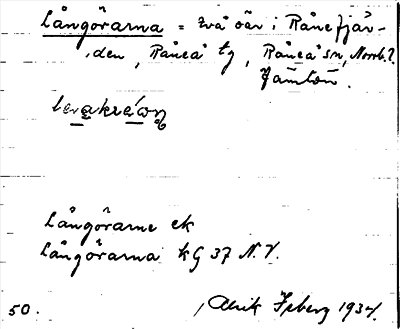 Långörarna = två öar i Rånefjär-
den, Råneå tg, Råneå sn, Norrb.?
Långörarne ek
Långörarna kG 37 N.V.
50. Ulrik Isberg 1934.